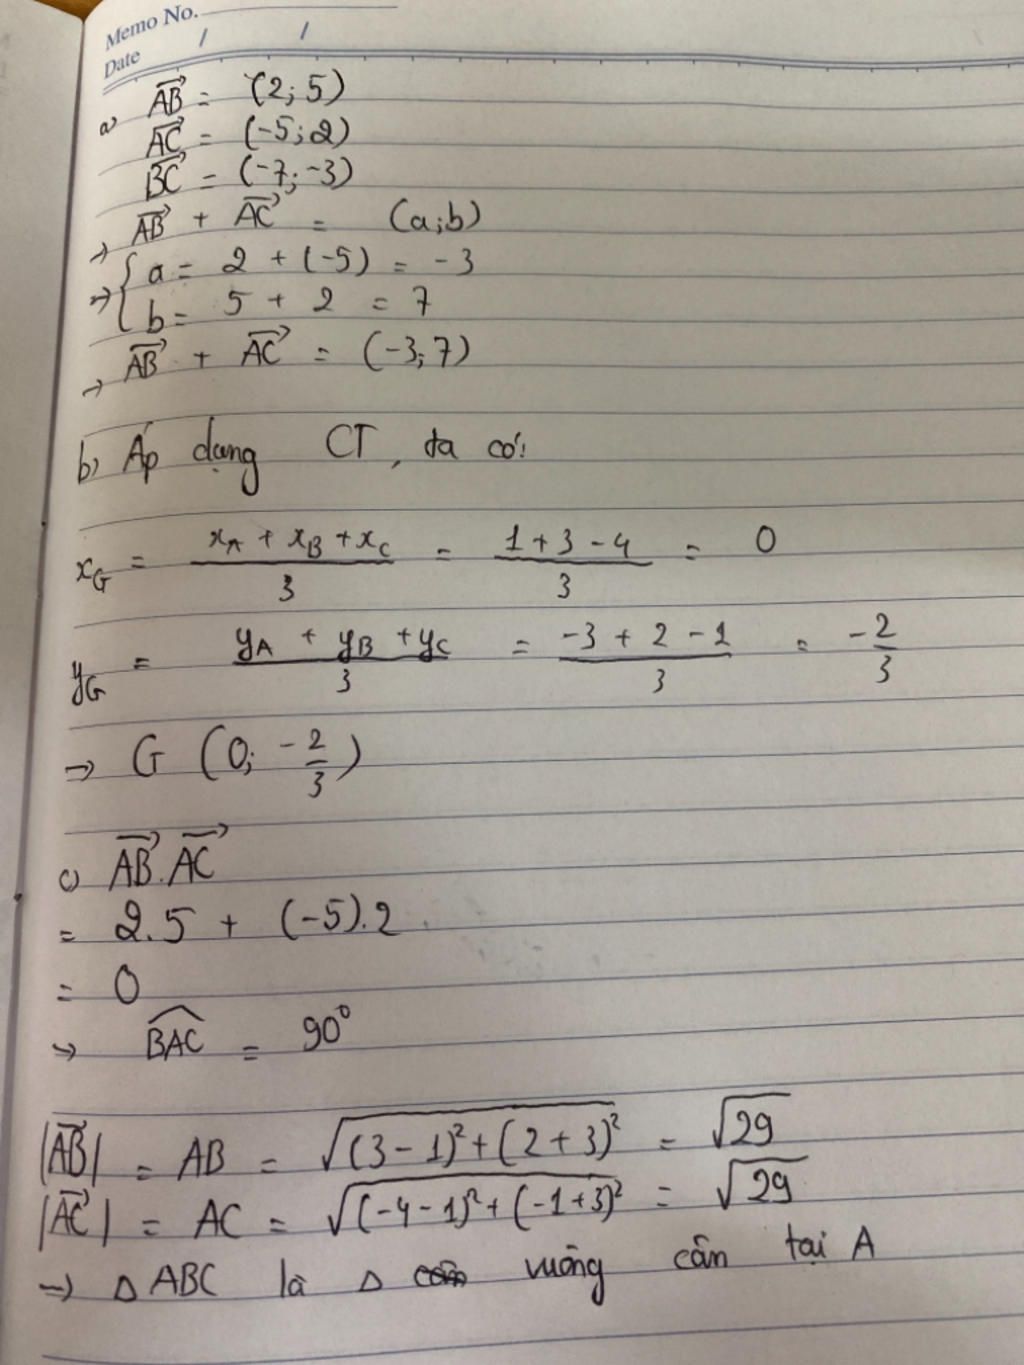 Memo No.
Date / /
a) $\overrightarrow{AB}$ = (2; 5)
$\overrightarrow{AC}$ = (-5; 2)
$\overrightarrow{BC}$ = (-7; -3)
→ $\overrightarrow{AB}$ + $\overrightarrow{AC}$ = (a; b)
→ { a = 2 + (-5) = -3
b = 5 + 2 = 7
→ $\overrightarrow{AB}$ + $\overrightarrow{AC}$ = (-3; 7)
b) Áp dụng CT, ta có:
$x_G = \frac{x_A + x_B + x_C}{3} = \frac{1 + 3 - 4}{3} = 0$
$y_G = \frac{y_A + y_B + y_C}{3} = \frac{-3 + 2 - 1}{3} = \frac{-2}{3}$
→ G (0; $-\frac{2}{3}$)
c) $\overrightarrow{AB}.\overrightarrow{AC}$
= 2.5 + (-5).2
= 0
→ $\widehat{BAC}$ = 90°
$|\overrightarrow{AB}| = AB = \sqrt{(3-1)^2 + (2+3)^2} = \sqrt{29}$
$|\overrightarrow{AC}| = AC = \sqrt{(-4-1)^2 + (-1+3)^2} = \sqrt{29}$
→ Δ ABC là Δ vuông cân tại A